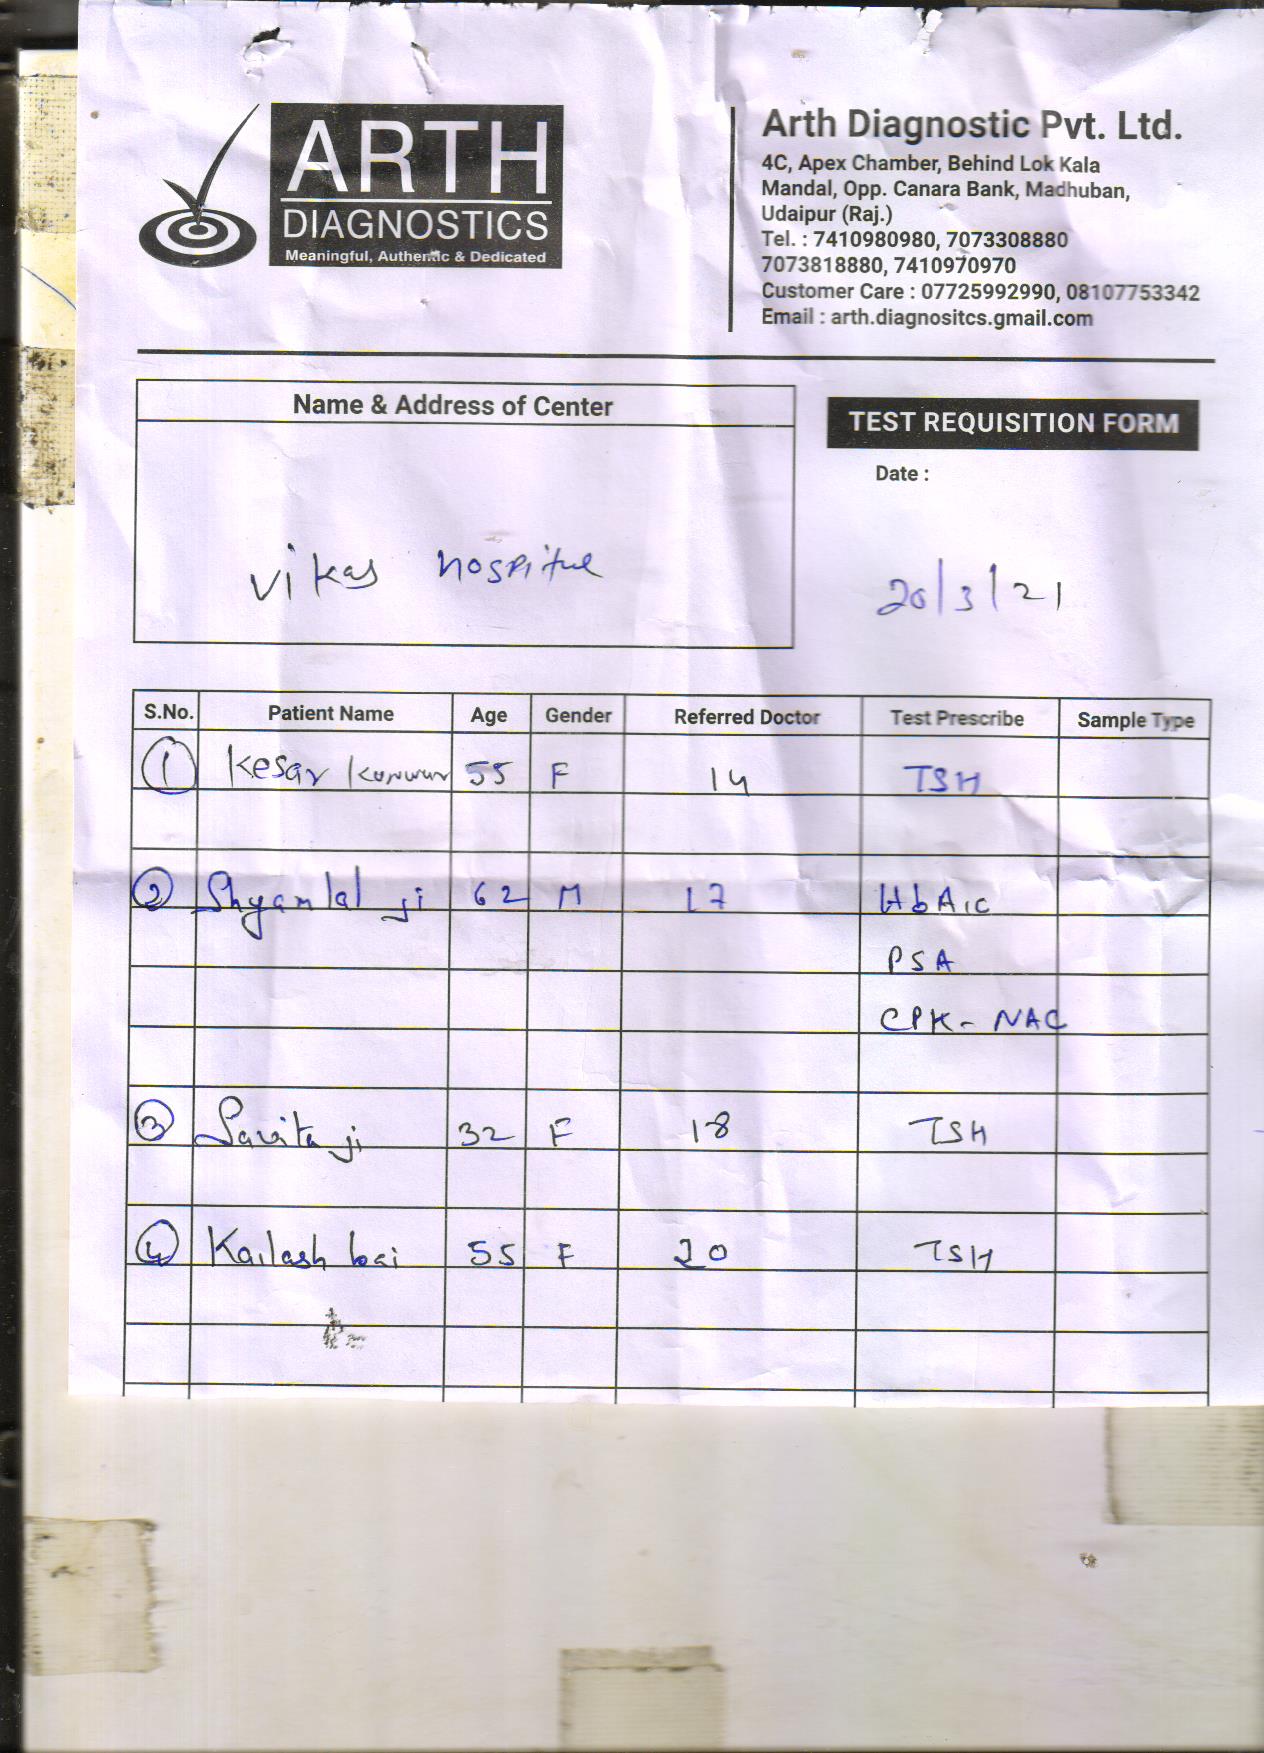 ARTH
DIAGNOSTICS
Meaningful, Authentic & Dedicated
Arth Diagnostic Pvt. Ltd.
4C, Apex Chamber, Behind Lok Kala
Mandal, Opp. Canara Bank, Madhuban,
Udaipur (Raj.)
Tel. : 7410980980, 7073308880
7073818880, 7410970970
Customer Care : 07725992990, 08107753342
Email : arth.diagnositcs.gmail.com
Name & Address of Center
TEST REQUISITION FORM
Date :
Vikas Hospital
20/3/21
S.No. Patient Name Age Gender Referred Doctor Test Prescribe Sample Type
1 Kesar Kunwar 55 F 14 TSH
2 Shyamlal ji 62 M 17 HbA1c
PSA
CPK - NAC
3 Savita ji 32 F 18 TSH
4 Kailash bai 55 F 20 TSH